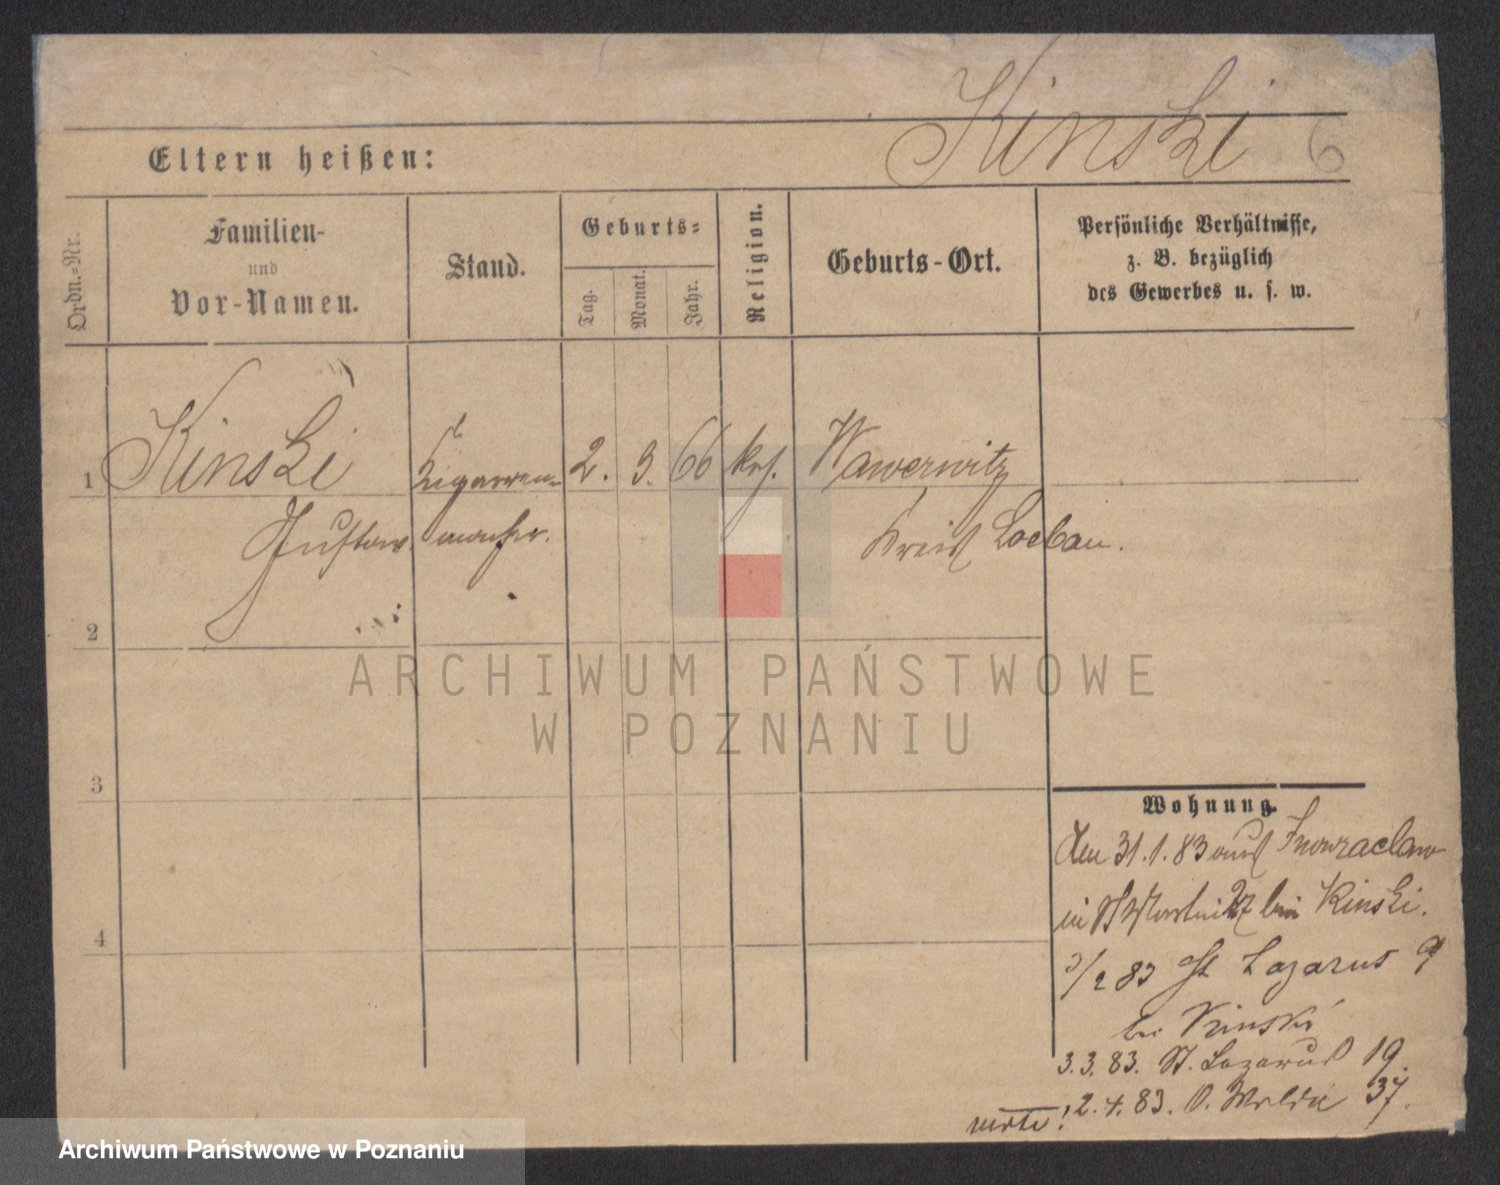 Kinski 6
Eltern heißen:
Ordn.-Nr.
Familien-
und
Vor-Namen.
Stand.
Geburts-
Tag.
Monat.
Jahr.
Religion.
Geburts-Ort.
Persönliche Verhältnisse,
z. B. bezüglich
des Gewerbes u. s. w.
1 Kinski Zigarren- 2. 3. 66 kth. Wawerwitz
Gustav macher. Kreis Loebau.
2
ARCHIWUM PAŃSTWOWE
W POZNANIU
3
Wohnung.
den 31.1.83 aus Inowraclaw
in St bei Kinski.
3/2 83 St Lazarus 9
bei Kinski
3.3.83. St. Lazarus 19.
4
2.4.83. O. Wilda 37.
verte!
Archiwum Państwowe w Poznaniu